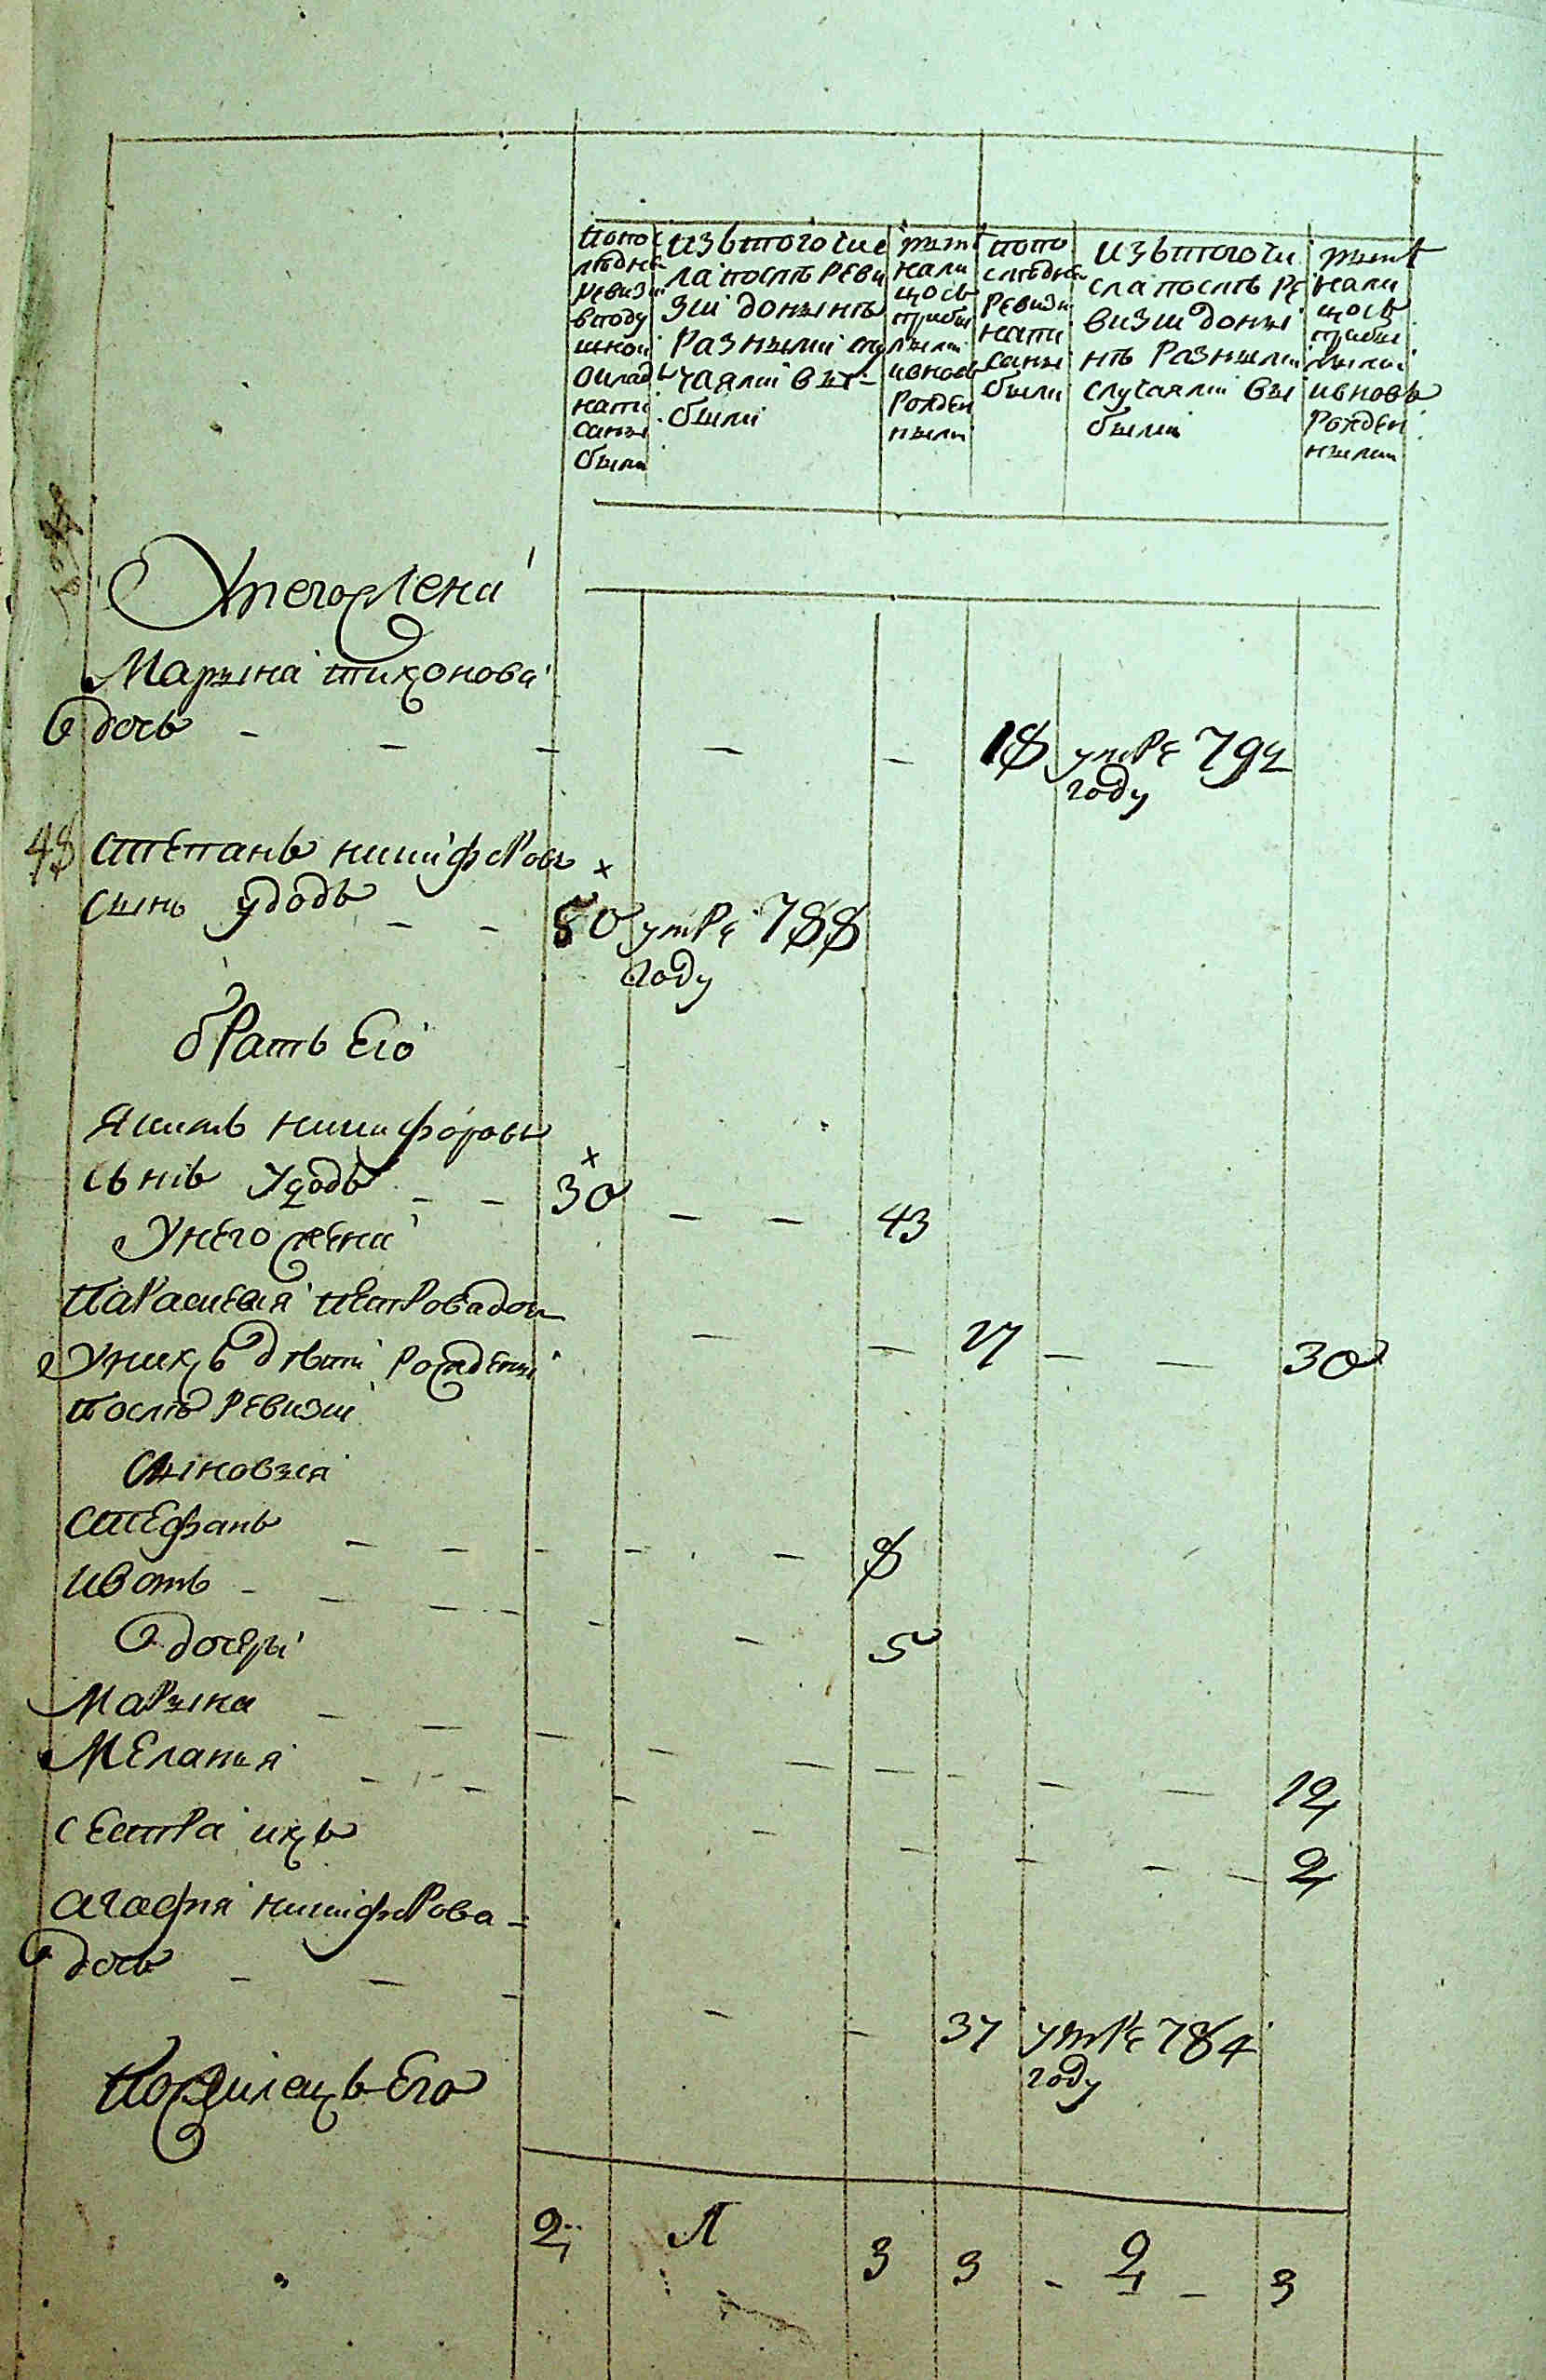 попос
лѣдне
ревизи
вподу
шнои
окладъ
напи
саны
были
изътого чис
ла послѣ реви
зіи донынѣ
разными слу
чаями вы-
были
ныне
нали
цось
прибы
лыми
ивновь
рожден
ными
попо
следне
ревизи
напи
саны
были
изътого чи
сла послѣ ре
визіи доны
нѣ разными
случаями вы
были
ныне
нали
цось
прибы
лыми
ивновь
рожден
ными
Унего жена
Марына тихонова
дочь - - - - - 18 умре 792
году
48 степанъ никифоровъ
сынъ удодъ - - 50 умре 788
году
братъ его
якимъ никифоровъ
сынъ удодъ - - 30 - - 43
Унего жена
Параскевія петрова доч
- - 27 - - 30
Унихъ дѣти рожденны
послѣ ревизіи
сыновья
стефанъ - - - - - 8
ивотъ - - - - - - 5
дочеры
Марына - - - - - - - - - 12
Меланья - - - - - - - - - 2
сестра ихъ
агафия никифорова -
дочь - - - - - 37 умре 784
году
Пожилецъ его
2 1 3 3 - 2 - 3